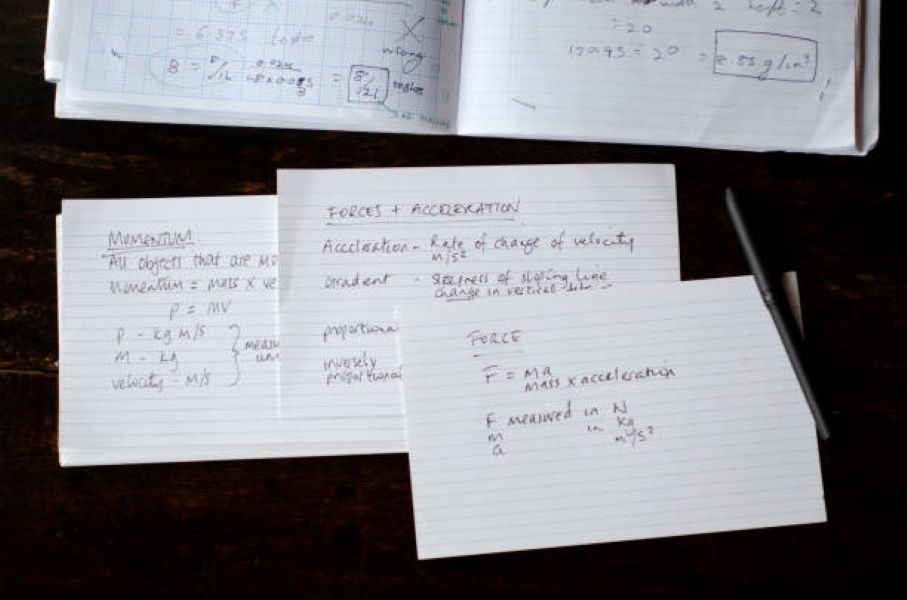 0.024
wrong
= 6.375
8 =
0.024
=
8/
121
2
= 20
170.95 ÷ 20 = 8.55 g/cm³
MOMENTUM.
All objects that are mo
Momentum = mass x ve
P = MV
P - kg m/s
M - kg
velocity - M/S
measu
uni
FORCES + ACCELERATION
Acceleration - Rate of change of velocity
m/s²
Gradient - Steepness of sloping line
change in vertical
proportiona
inversely
proportional
FORCE
F = Ma
mass x acceleration
F measured in N
m in kg
a m/s²